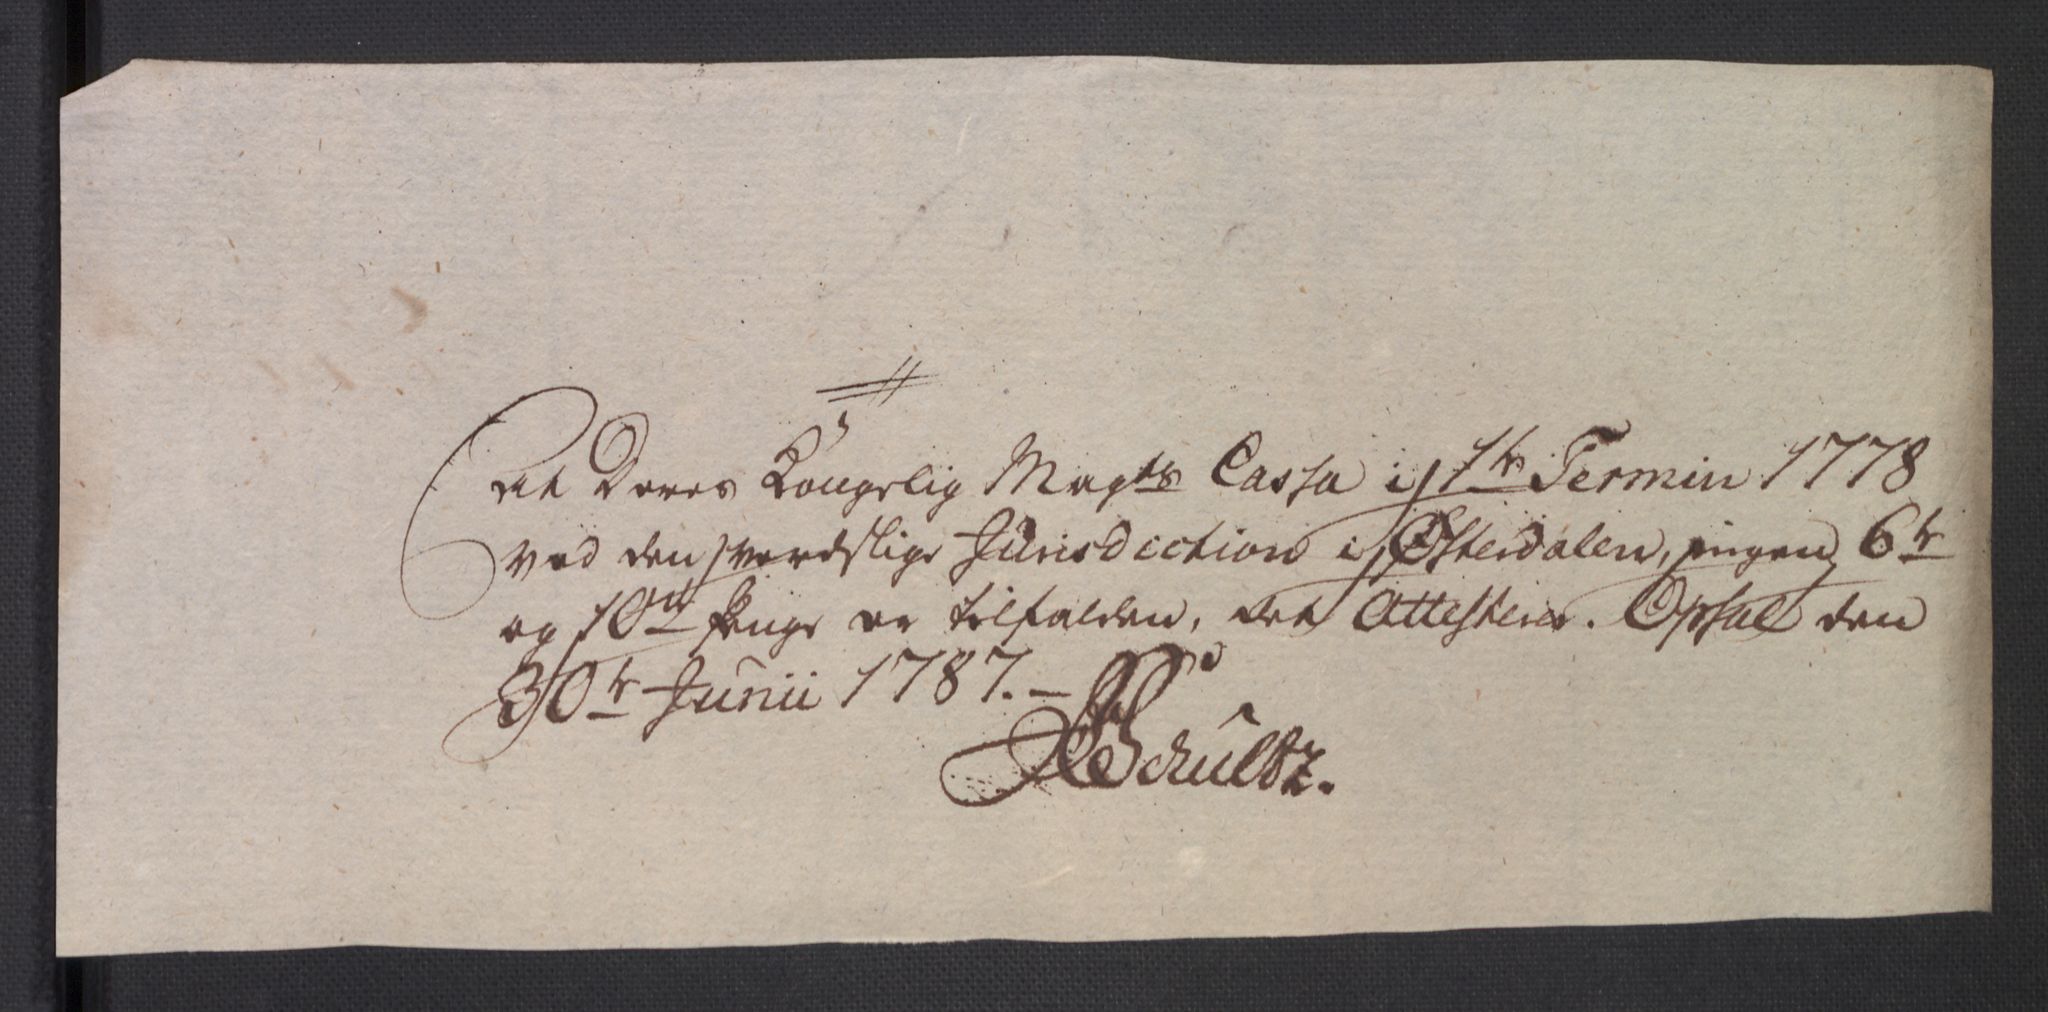 At Deres Kongelig Mayts Cassa i 1te Termin 1778
ved den verdslige Jurisdiction i Østerdalen, ingen 6te
og 10de Penge er tilfalden, det Attesteres. Opsal den
30te Junii 1787. —
Schultz.